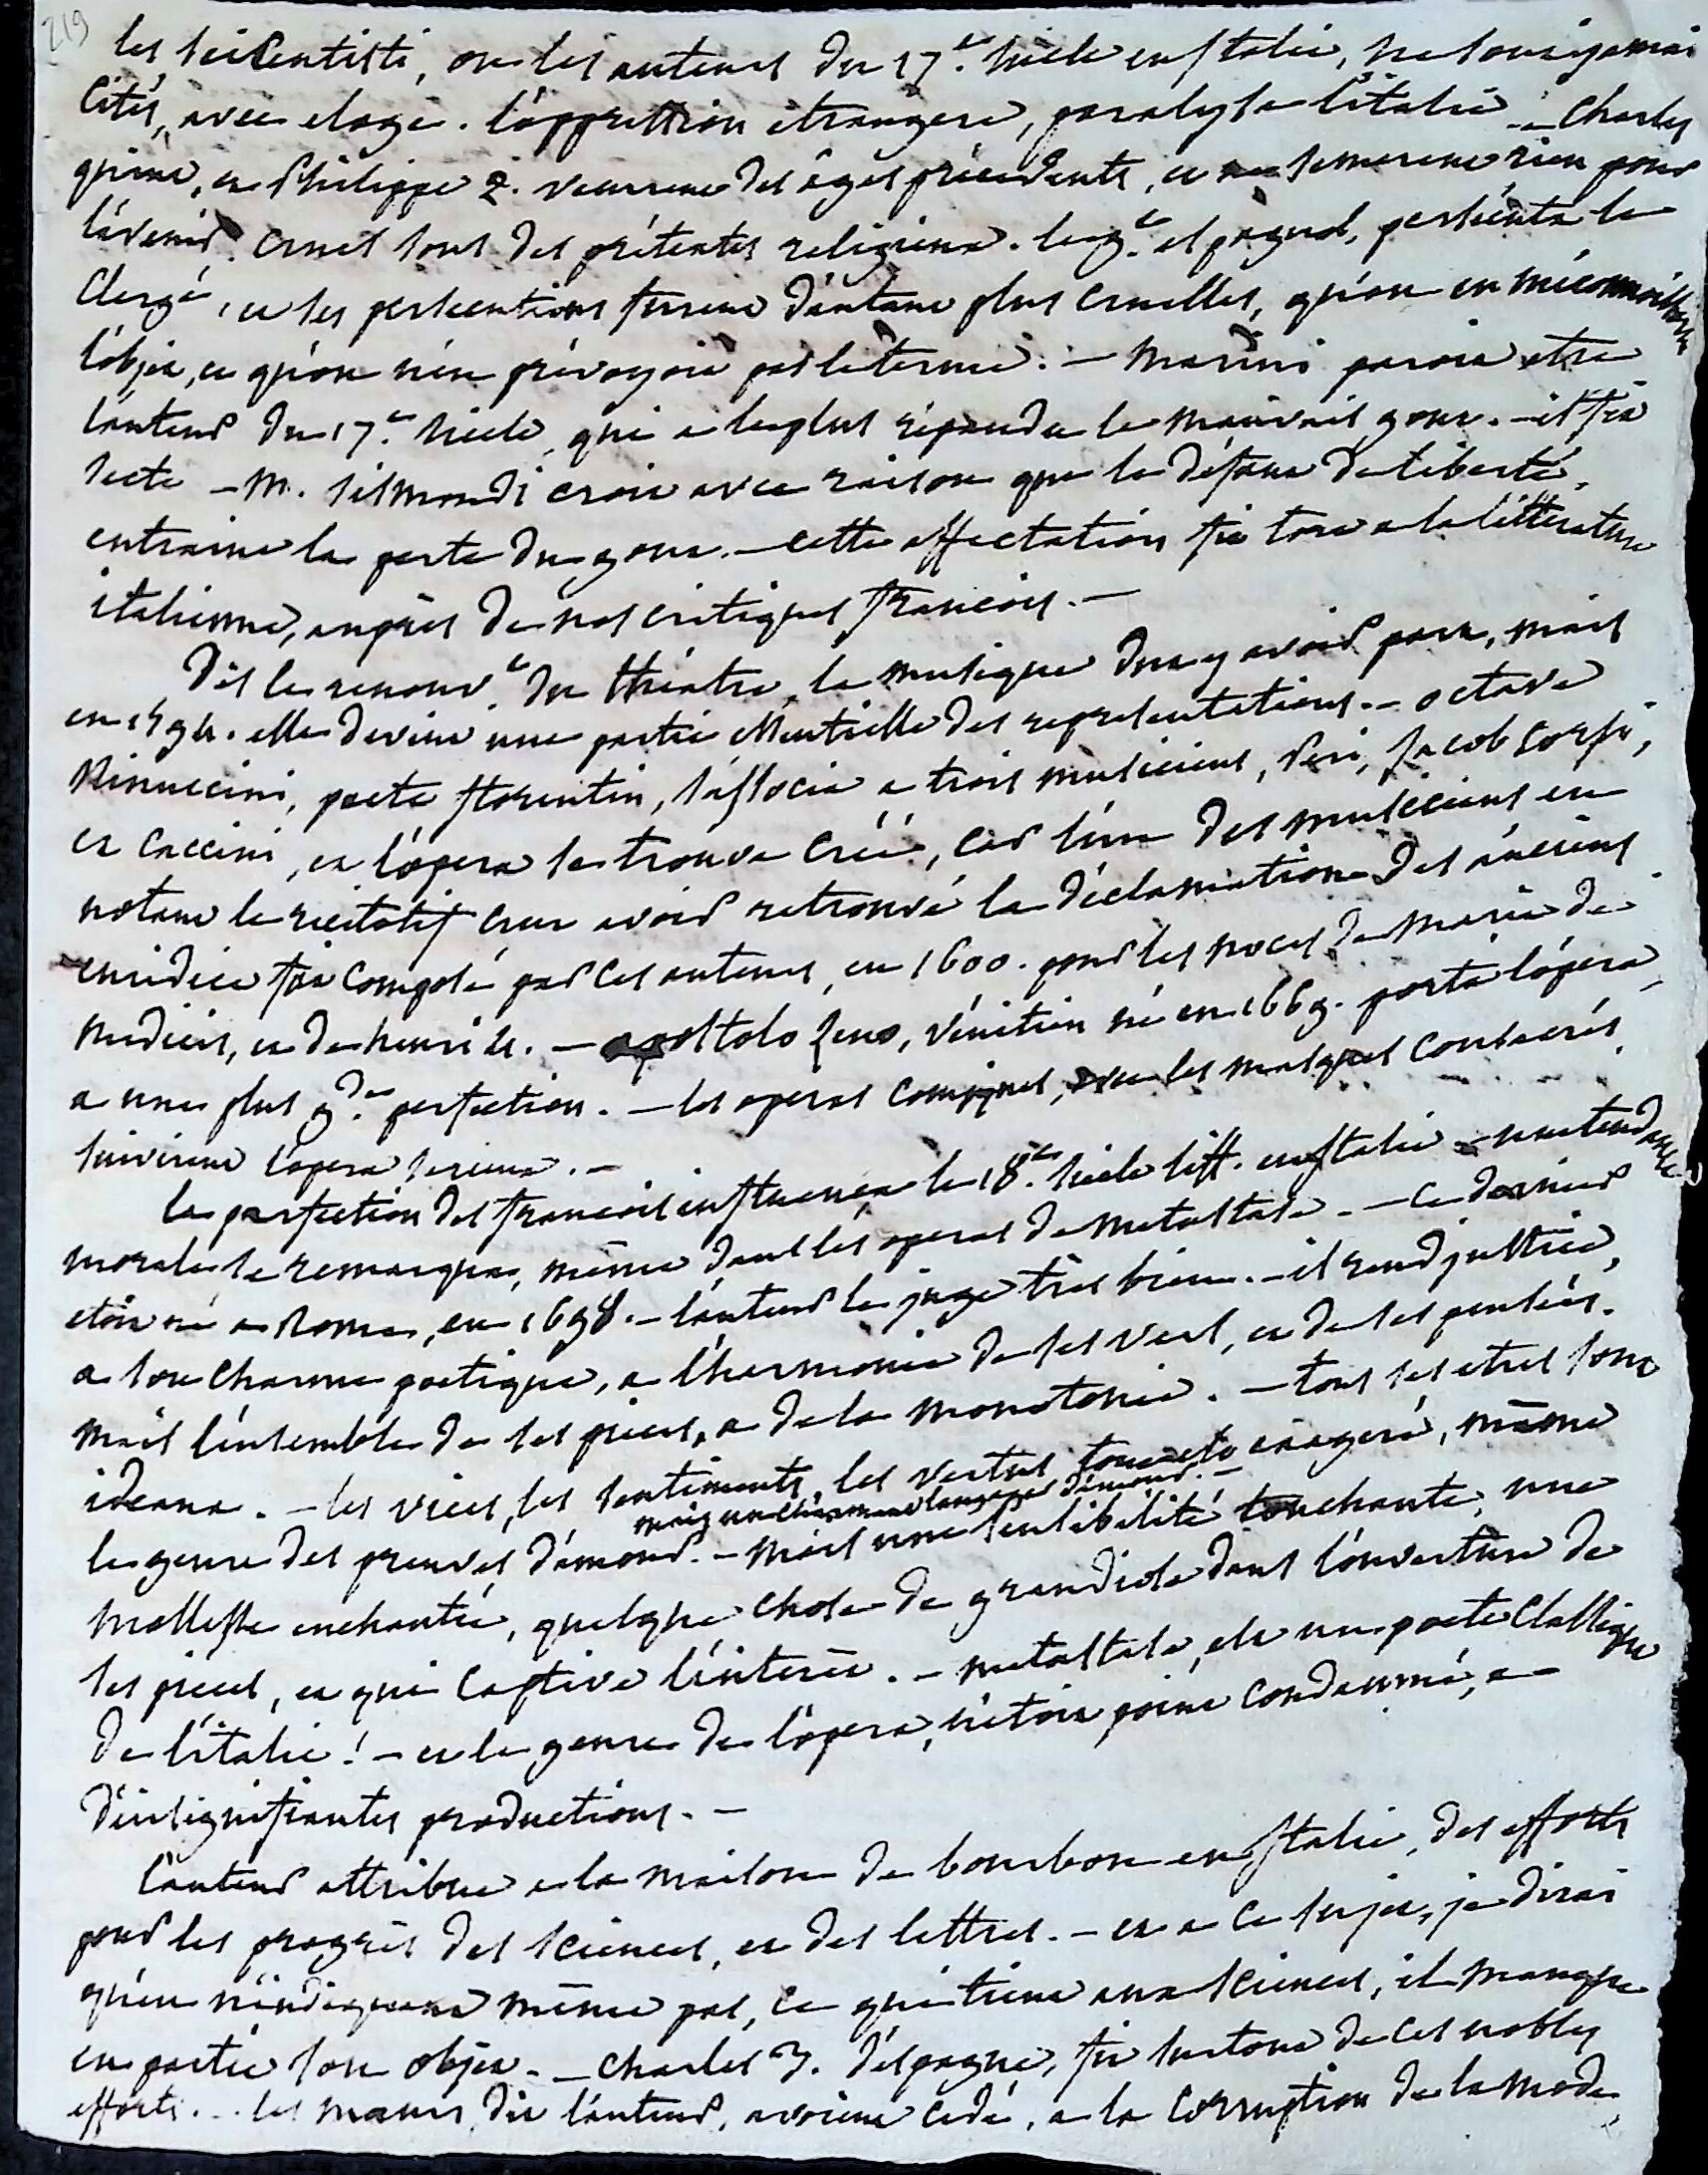 219
les seicentisti, ou les auteurs du 17.e siecle en Italie, ne sont jamais
cités, avec eloge. l'oppression étrangere, paralysa l'italie. – Charles
quint, et Philippe 2. vecurent des âges précédents, et ne semerent rien pour
l'avenir. cruels sous des prétextes religieux. le g.t espagnol, persécuta le
Clergé, et les persécutions furent d'autant plus cruelles, qu'on en méconnoissoit
l'objet, et qu'on n'en prévoyoit pas le terme. – Marini paroit etre
l'auteur du 17.e siecle, qui a le plus répandu le mauvais gout. – il fit
secte – M. Sismondi croit avec raison que le défaut de liberté,
entraine la perte du gout. – cette affectation fit tort a la littérature
italienne, auprès de nos critiques francois. –
Dès le renouv.t du théatre, la musique dut y avoir part, mais
en 1594. elle devint une partie essentielle des representations. – octave
Rinuccini, poete florentin, s'associa a trois musiciens, Peri, Jacob Corsi,
et Caccini, et l'opera se trouva créé, car l'un des musiciens en
notant le récitatif crut avoir retrouvé la déclamation des anciens
euridice fut composé par ces auteurs, en 1600. pour les noces de Marie de
Medicis, et de henri 4. – apostolo Zeno, vénitien né en 1669. porta l'opera,
a une plus g.de perfection. – les operas comiques, avec les masques consacrés,
suivirent l'opera serieux. –
la perfection des francois influença le 18.e siecle litt. en Italie – une tendance
morale se remarqua, même dans les operas de Metastase. – ce dernier
etoit né a Rome, en 1698. – l'auteur le juge très bien. – il rend justice,
a son charme poetique, a l'harmonie de ses vers, et de ses pensées.
mais l'ensemble de ses pieces, a de la monotonie. – tous ses etres sont
ideaux. – les vices, les sentiments, les vertus tout est exagéré, même
mais un charmant langage d'amour. –
le genre des preuves d'amour. – mais une sensibilité touchante, une
mollesse enchantée, quelque chose de grandiose dans l'ouverture de
ses pieces, et qui captive l'interêt. – metastase, est un poete classique
de l'italie! – et le genre de l'opera, n'étoit point condamné, a
d'insignifiantes productions. –
l'auteur attribue a la maison de bourbon en Italie, des efforts
pour les progrès des sciences, et des lettres. – et a ce sujet, je dirai
qu'en n'indiquant même pas, ce qui tient aux sciences, il manque
en partie son objet. – Charles 3. d'espagne, fit surtout de ces nobles
efforts. – les mœurs, dit l'auteur, avoient cédé, a la corruption de la mode,